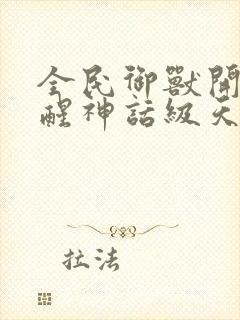 全民御獸開
醒神話級天
拉法